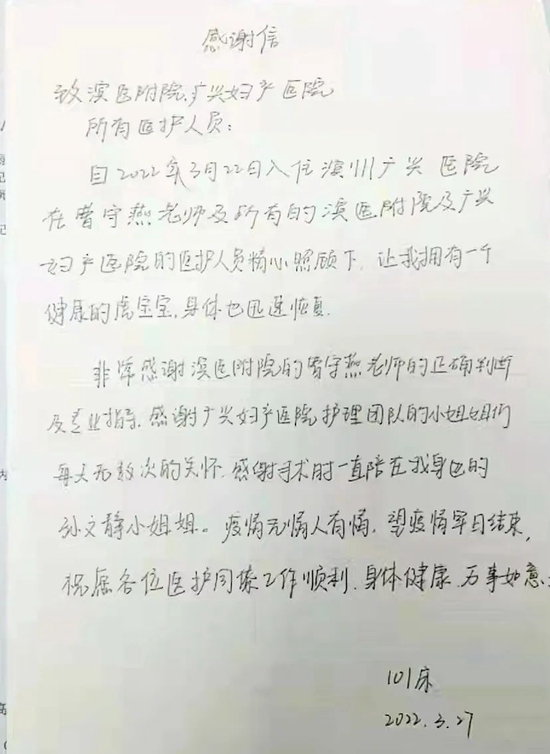 感谢信
致滨医附院、广兴妇产医院
所有医护人员:
自2022年3月22日入住滨州广兴医院
在曹守燕老师及所有的滨医附院及广兴
妇产医院的医护人员精心照顾下,让我拥有一个
健康的虎宝宝,身体也迅速恢复.
非常感谢滨医附院的曹守燕老师的正确判断
及专业指导,感谢广兴妇产医院护理团队的小姐姐们
每天无数次的关怀.感谢手术时一直陪在我身边的
孙文静小姐姐。疫情无情人有情,望疫情早日结束,
祝愿各位医护同事工作顺利,身体健康,万事如意.
101床
2022.3.27